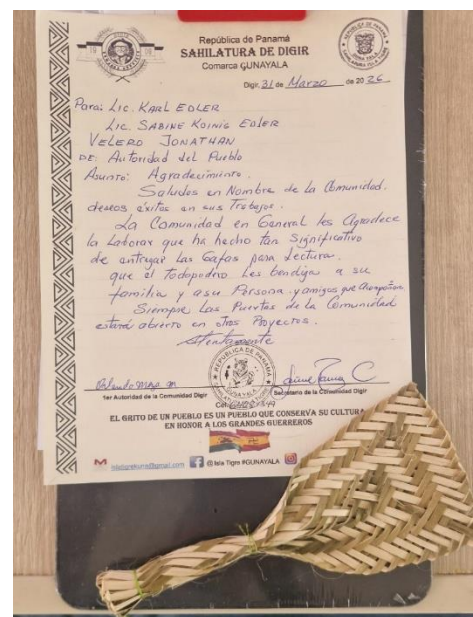 República de Panamá
SAHILATURA DE DIGIR
Comarca GUNAYALA
Digir, 31 de Marzo de 2026
Para: Lic. KARL EDLER
Lic. SABINE KOINIG EDLER
VELERO JONATHAN
DE: Autoridad del Pueblo
Asunto: Agradecimiento.
Saludos en Nombre de la Comunidad.
deseos éxitos en sus Trabajos.
La Comunidad en General les Agradece
la Laborar que ha hecho tan Significativo
de antregar las Gafas para Lectura.
que el Todopodero les bendiga a su
familia y asu Persona y amigos que Acompañan
Siempre las Puertas de la Comunidad
estará abierto en otros Proyectos.
Atentamente
REPÚBLICA DE PANAMÁ
1er Autoridad de la Comunidad Digir
Secretario de la Comunidad Digir
EL GRITO DE UN PUEBLO ES UN PUEBLO QUE CONSERVA SU CULTURA
EN HONOR A LOS GRANDES GUERREROS
@ Isla Tigre #GUNAYALA